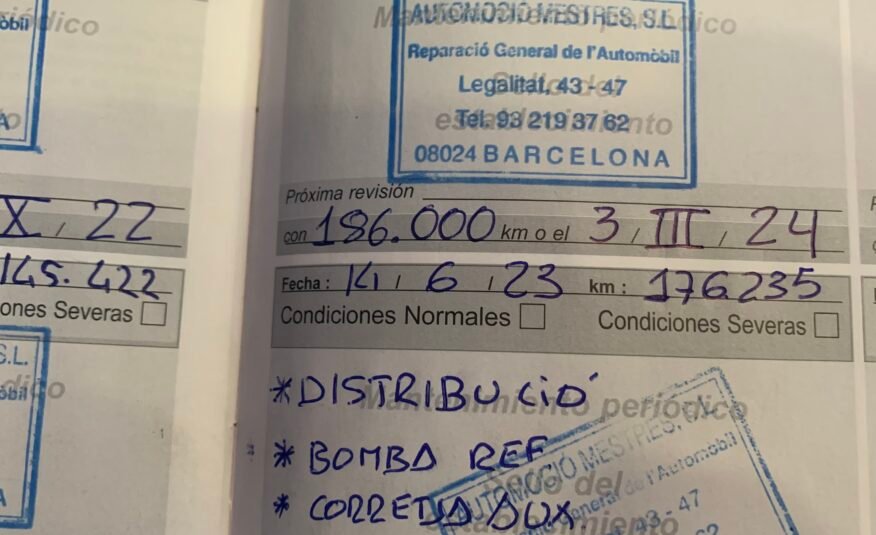 òbil
X / 22
145.422
ones Severas
S.L.
òbil
Mantenimiento periódico
AUTOMOCIÓ MESTRES, S.L.
Reparació General de l'Automòbil
Legalitat, 43 - 47
Sello del
Tel. 93 219 37 62
establecimiento
08024 BARCELONA
Próxima revisión
con 186.000 km o el 3 / III / 24
Fecha : / 6 / 23 km : 176.235
Condiciones Normales
Condiciones Severas
* DISTRIBUCIÓ
Mantenimiento periódico
* BOMBA REF
AUTOMOCIÓ MESTRES, S.L.
General de l'Automòbil
Sello del
* CORRETJA AUX
43 - 47
establecimiento
62